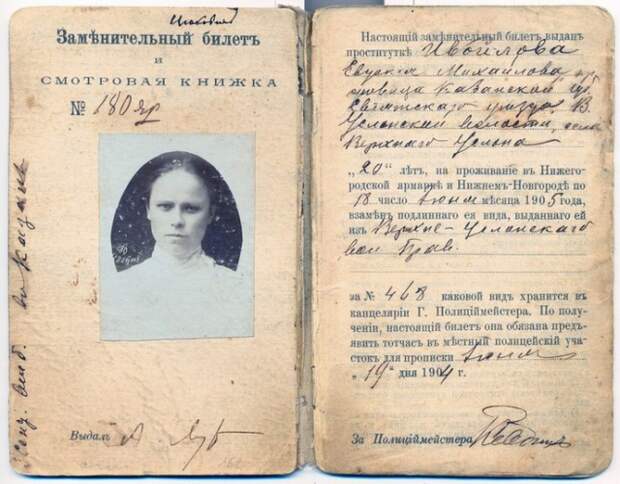 Замѣнительный билетъ
и
СМОТРОВАЯ КНИЖКА
№ 180 яр
Выдалъ А.
Настоящій замѣнительный билетъ выданъ
проституткѣ
Михайлова
Казанской губ.
уѣзда В.
Услонской волости, села
Верхняго Услона
„20“ лѣтъ, на проживаніе въ Нижего-
родской ярмаркѣ и Нижнемъ-Новгородѣ по
18 число Іюня мѣсяца 1905 года,
взамѣнъ подлиннаго ея вида, выданнаго ей
изъ Верхне-Услонскаго
вол Прав.
за № 468 каковой видъ хранится въ
канцеляріи Г. Полиціймейстера. По полу-
ченіи, настоящій билетъ она обязана предъ-
явить тотчасъ въ мѣстный полицейскій уча-
стокъ для прописки Іюня
„19“ дня 1904 г.
За Полиціймейстера